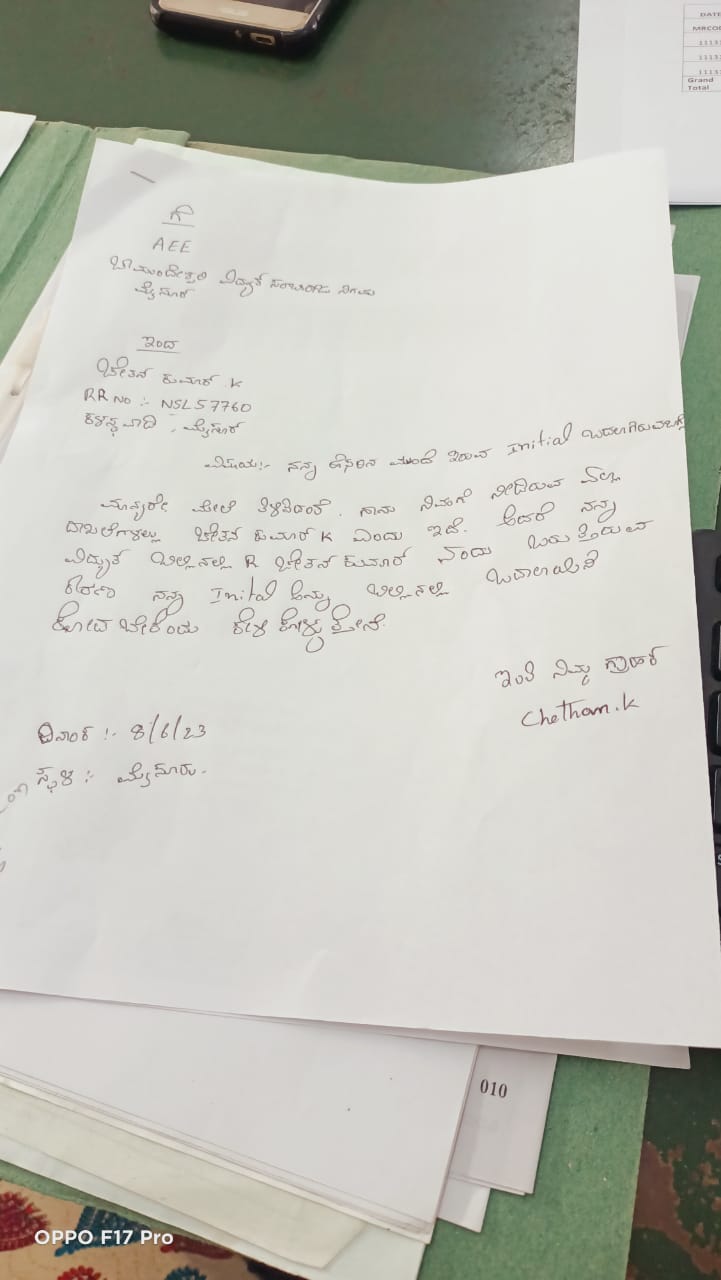 DATE
MRCOD
1113
1113
1113
Grand
Total
ಗೆ
AEE
ಚಾಮುಂಡೇಶ್ವರಿ ವಿದ್ಯುತ್ ಸರಬರಾಜು ನಿಗಮ
ಮೈಸೂರ್
ಇಂದ
ಚೇತನ್ ಕುಮಾರ್ K
RR No :- NSLS7760
ಮೈಸೂರ್
ವಿಷಯ:- ನನ್ನ ಹೆಸರಿನ ಮುಂದೆ ಇರುವ Initial ಬದಲಾಗಿರುವ ಬಗ್ಗೆ
ಮಾನ್ಯರೇ ಮೇಲೆ ತಿಳಿಸಿದಂತೆ. ನಾನು ನಿಮಗೆ ನೀಡಿರುವ ಎಲ್ಲಾ
ದಾಖಲೆಗಳಲ್ಲು ಚೇತನ್ ಕುಮಾರ್ K ಎಂದು ಇದೆ. ಆದರೆ ನನ್ನ
ವಿದ್ಯುತ್ ಬಿಲ್ಲಿನಲ್ಲಿ R ಚೇತನ್ ಕುಮಾರ್ ಎಂದು ಬರುತ್ತಿರುವ
ಕಾರಣ ನನ್ನ Inital ಅನ್ನು ಬಿಲ್ಲಿನಲ್ಲಿ ಬದಲಾಯಿಸಿ
ಕೊಡಬೇಕೆಂದು ಕೇಳಿಕೊಳ್ಳುತ್ತೇನೆ.
ಇಂತಿ ನಿಮ್ಮ ಗ್ರಾಹಕ
Chethan.k
ದಿನಾಂಕ :- 8/6/23
ಸ್ಥಳ :- ಮೈಸೂರು.
010
OPPO F17 Pro